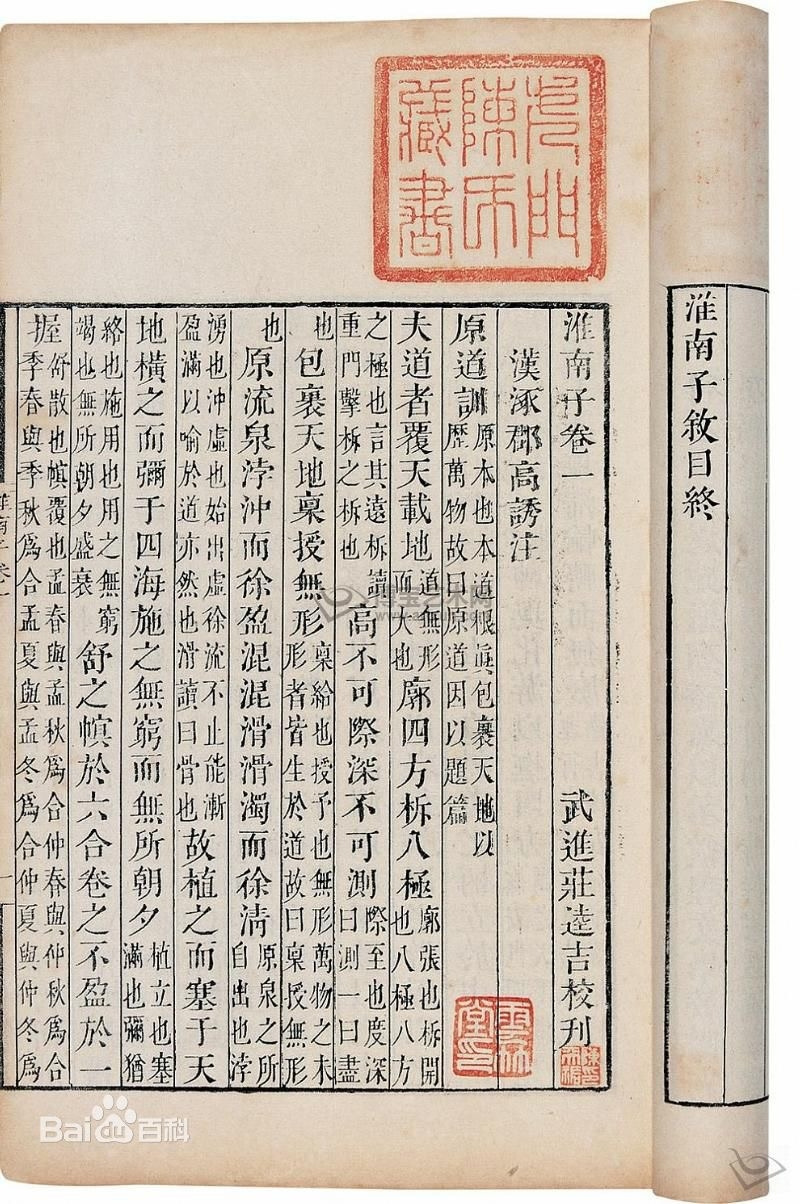 淮南子敘目終
淮南子卷一 武進莊逵吉校刊
漢涿郡高誘注
原道訓 原本也本道根真包裹天地以歷萬物故曰原道因以題篇
夫道者覆天載地 道無形而大也 廓四方柝八極 廓張也柝開也八極八方
之極也言其遠柝讀重門擊柝之柝也 高不可際深不可測 際至也度深曰測一曰盡
也 包裹天地稟授無形 稟給也授予也無形萬物之未形者皆生於道故曰稟授無形
也 原流泉浡沖而徐盈混混滑滑濁而徐清 原泉之所自出也浡
湧也沖虛也始出虛徐流不止能漸盈滿以喻於道亦然也滑讀曰骨也 故植之而塞于天
地橫之而彌于四海施之無窮而無所朝夕 植立也塞滿也彌猶
絡也施用也用之無窮竭也無所朝夕盛衰 舒之幎於六合卷之不盈於一
握 舒散也幎覆也孟春與孟秋為合仲春與仲秋為合季春與季秋為合孟夏與孟冬為合仲夏與仲冬為
門陳氏藏書
淮南子卷一
博宝艺术网
Bai百科